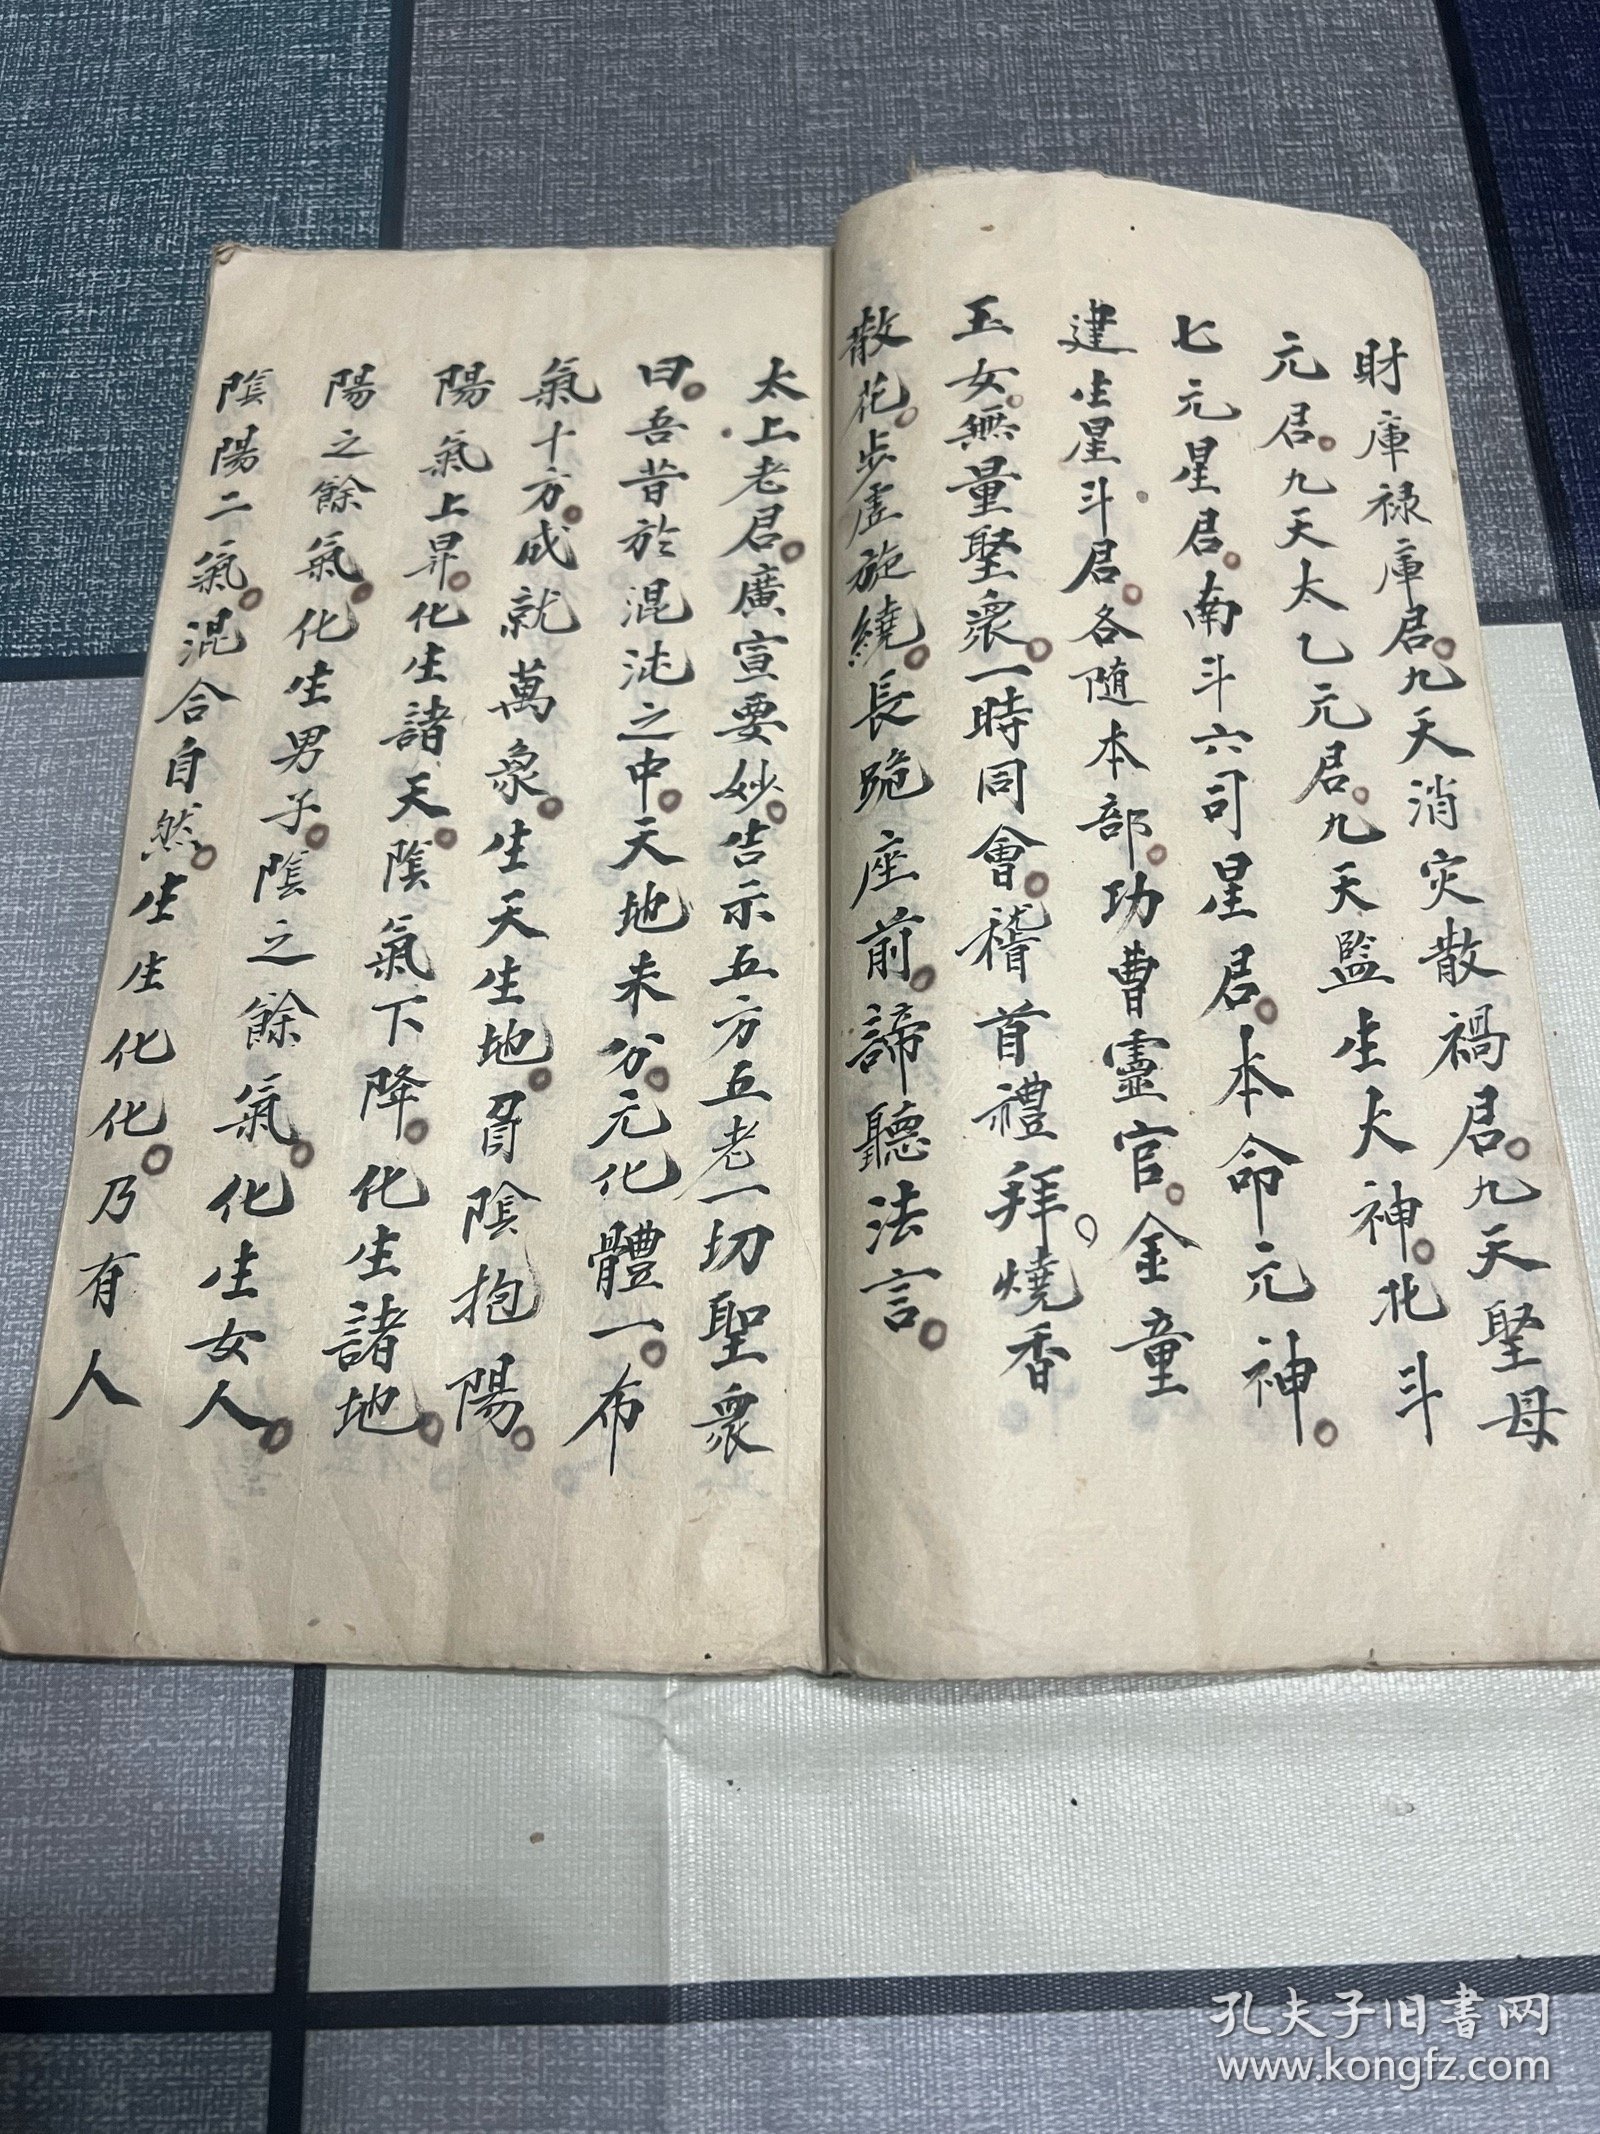 財庫禄庫君。九天消灾散禍君。九天聖母
元君。九天太乙元君。九天監生大神。北斗
七元星君。南斗六司星君。本命元神。
建生星斗君。各随本部。功曹靈官。金童
玉女。無量聖衆。一時同會。稽首禮拜。燒香
散花。步虚旋繞。長跪座前。諦聽法言。
太上老君。廣宣要妙。告示五方五老一切聖衆
曰。吾昔於混沌之中。天地未分。元化體一。布
氣十方。成就萬象。生天生地。胥陰抱陽。
陽氣上昇。化生諸天。陰氣下降。化生諸地。
陽之餘氣。化生男子。陰之餘氣。化生女人。
陰陽二氣。混合自然。生生化化。乃有人
孔夫子旧书网
www.kongfz.com